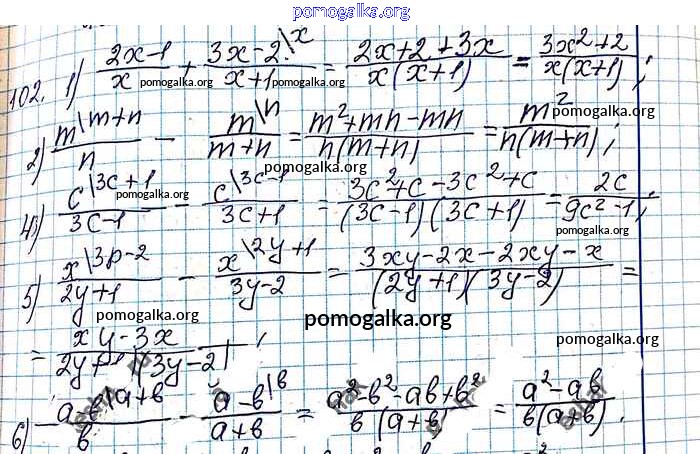 pomogalka.org
102. 1) (2x-1)/x + (3x-2\x)/(x+1) = (2x+2+3x)/(x(x+1)) = (3x²+2)/(x(x+1));
pomogalka.org pomogalka.org pomogalka.org
2) (m\m+n)/n - (m\n)/(m+n) = (m²+mn-mn)/(n(m+n)) = m²/(n(m+n));
pomogalka.org
pomogalka.org
4) (c\3c+1)/(3c-1) - (c\3c-1)/(3c+1) = (3c²+c-3c²+c)/((3c-1)(3c+1)) = 2c/(9c²-1);
pomogalka.org pomogalka.org
5) (x\3p-2)/(2y+1) - (x\2y+1)/(3y-2) = (3xy-2x-2xy-x)/((2y+1)(3y-2)) =
pomogalka.org pomogalka.org
= (xy-3x)/(2y+1)(3y-2);
6) (a-b\a+b)/b - (a-b\b)/(a+b) = (a²-b²-ab+b²)/(b(a+b)) = (a²-ab)/(b(a+b)).